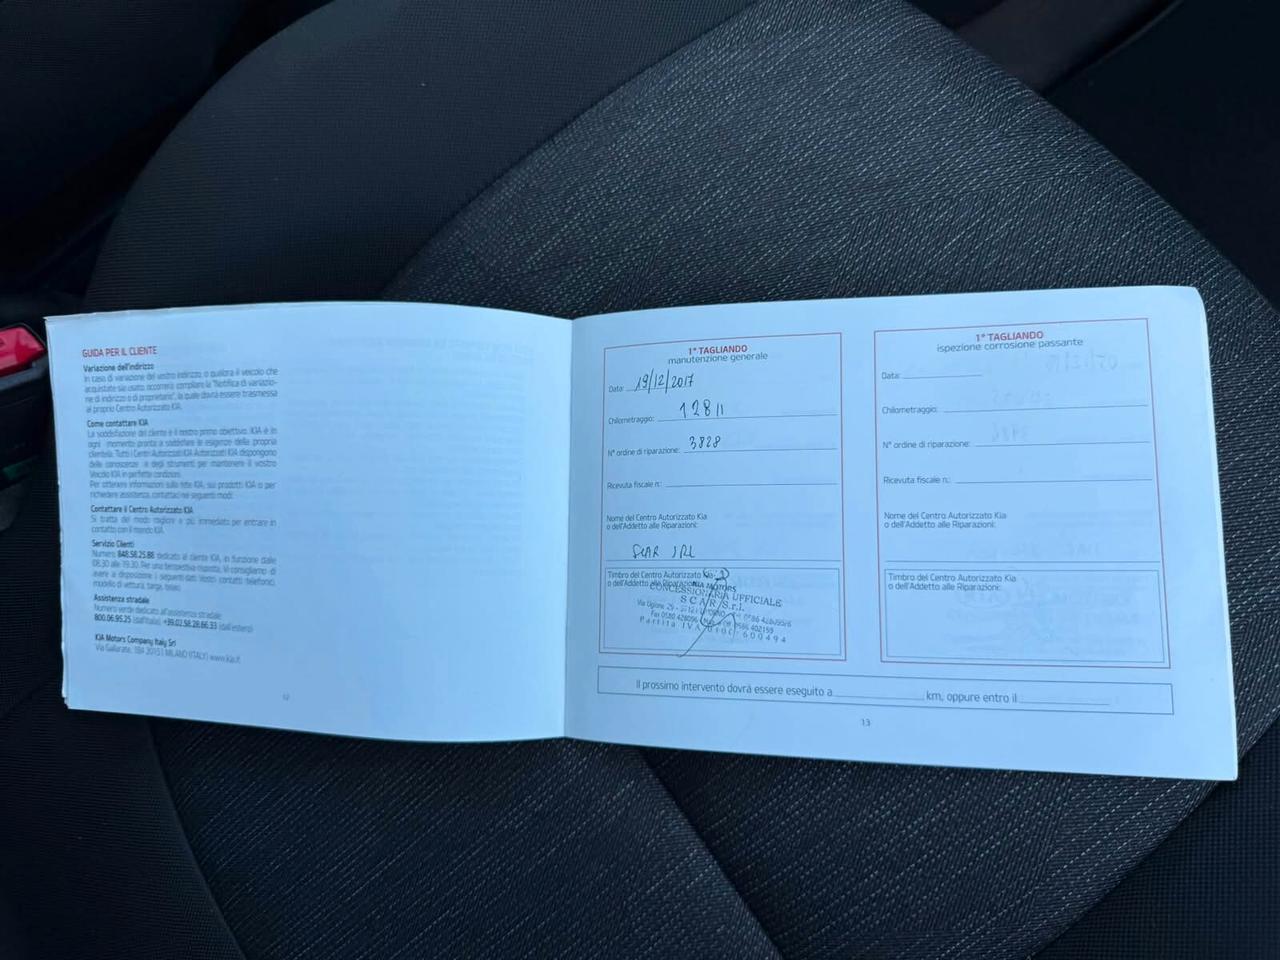 GUIDA PER IL CLIENTE
Variazione dell'indirizzo
In caso di variazione del vostro indirizzo, o qualora il veicolo che
acquistate sia usato, occorrerà compilare la "Notifica di variazio-
ne di indirizzo o di proprietario", la quale dovrà essere trasmessa
al proprio Centro Autorizzato KIA.
Come contattare KIA
La soddisfazione del cliente è il nostro primo obiettivo. KIA è in
ogni momento pronta a soddisfare le esigenze della propria
clientela. Tutti i Centri Autorizzati KIA dispongono
delle conoscenze e degli strumenti per mantenere il vostro
Veicolo KIA in perfette condizioni.
Per ottenere informazioni sulla rete KIA, sui prodotti KIA o per
richiedere assistenza, contattaci nei seguenti modi:
Contattare il Centro Autorizzato KIA
Si tratta del modo migliore e più immediato per entrare in
contatto con il mondo KIA.
Servizio Clienti
Numero 848.58.25.88 dedicato al cliente KIA, in funzione dalle
08.30 alle 19.30. Per una tempestiva risposta, Vi consigliamo di
avere a disposizione i seguenti dati: Vostri contatti telefonici,
modello di vettura, targa, telaio.
Assistenza stradale
Numero verde dedicato all'assistenza stradale
800.06.95.25 (dall'Italia) +39.02.58.28.66.33 (dall'estero)
KIA Motors Company Italy Srl
Via Gallarate, 184 20151 MILANO (ITALY) www.kia.it
12
1° TAGLIANDO
manutenzione generale
Data: 19/12/2017
Chilometraggio: 12811
N° ordine di riparazione: 3828
Ricevuta fiscale n.:
Nome del Centro Autorizzato Kia
o dell'Addetto alle Riparazioni:
SCAR SRL
Timbro del Centro Autorizzato Kia
o dell'Addetto alle Riparazioni:
KIA MOTORS
CONCESSIONARIA UFFICIALE
SCAR S.r.l.
Partita IVA
1° TAGLIANDO
ispezione corrosione passante
Data:
Chilometraggio:
N° ordine di riparazione:
Ricevuta fiscale n.:
Nome del Centro Autorizzato Kia
o dell'Addetto alle Riparazioni:
Timbro del Centro Autorizzato Kia
o dell'Addetto alle Riparazioni:
Il prossimo intervento dovrà essere eseguito a km, oppure entro il
13